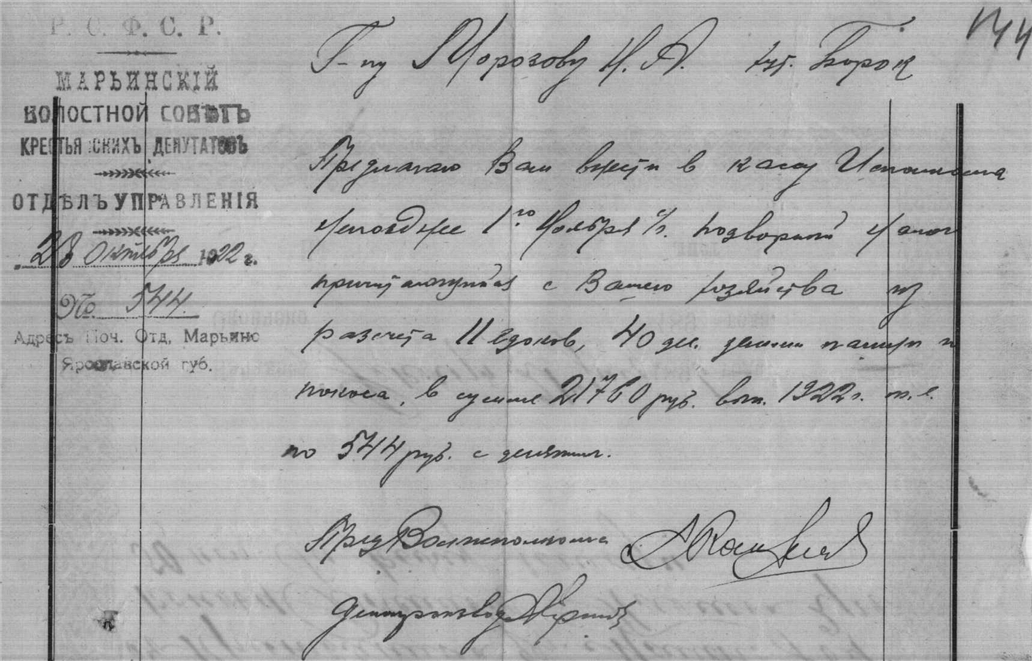 Р. С. Ф. С. Р.
МАРЬИНСКІЙ
ВОЛОСТНОЙ СОВѢТЪ
КРЕСТЬЯНСКИХЪ ДЕПУТАТОВЪ
ОТДѢЛЪ УПРАВЛЕНІЯ
28 октября 1922 г.
№ 544
Адресъ Поч. Отд. Марьино
Ярославской губ.
144
Г-ну Морозову Н. А. им. Борок
Предлагаю Вам внести в кассу Исполкома
не позднее 1го Ноября с/г. подворный налог
причитающийся с Вашего хозяйства из
расчета 11 едоков, 40 дес. земли пашни и
покоса, в сумме 21760 руб. вып. 1922 г. т. е.
по 544 руб. с десятин.
Пред Волисполкома
Делопроизвод